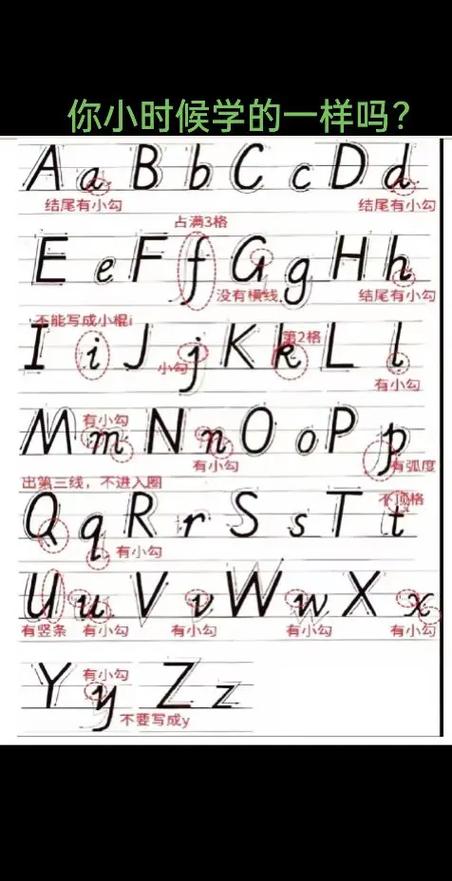 你小时候学的一样吗？
A a B b C c D d
结尾有小勾 结尾有小勾
占满3格
E e F f G g H h
没有横线 结尾有小勾
不能写成小棍i
第2格
I i J j K k L l
小勾
有小勾
有小勾
M m N n O o P p
有小勾 有弧度
出第三线，不进入圈
不顶格
Q q R r S s T t
有小勾
U u V v W w X x
有竖条 有小勾 有小勾 有小勾 有小勾
有小勾
Y y Z z
不要写成y